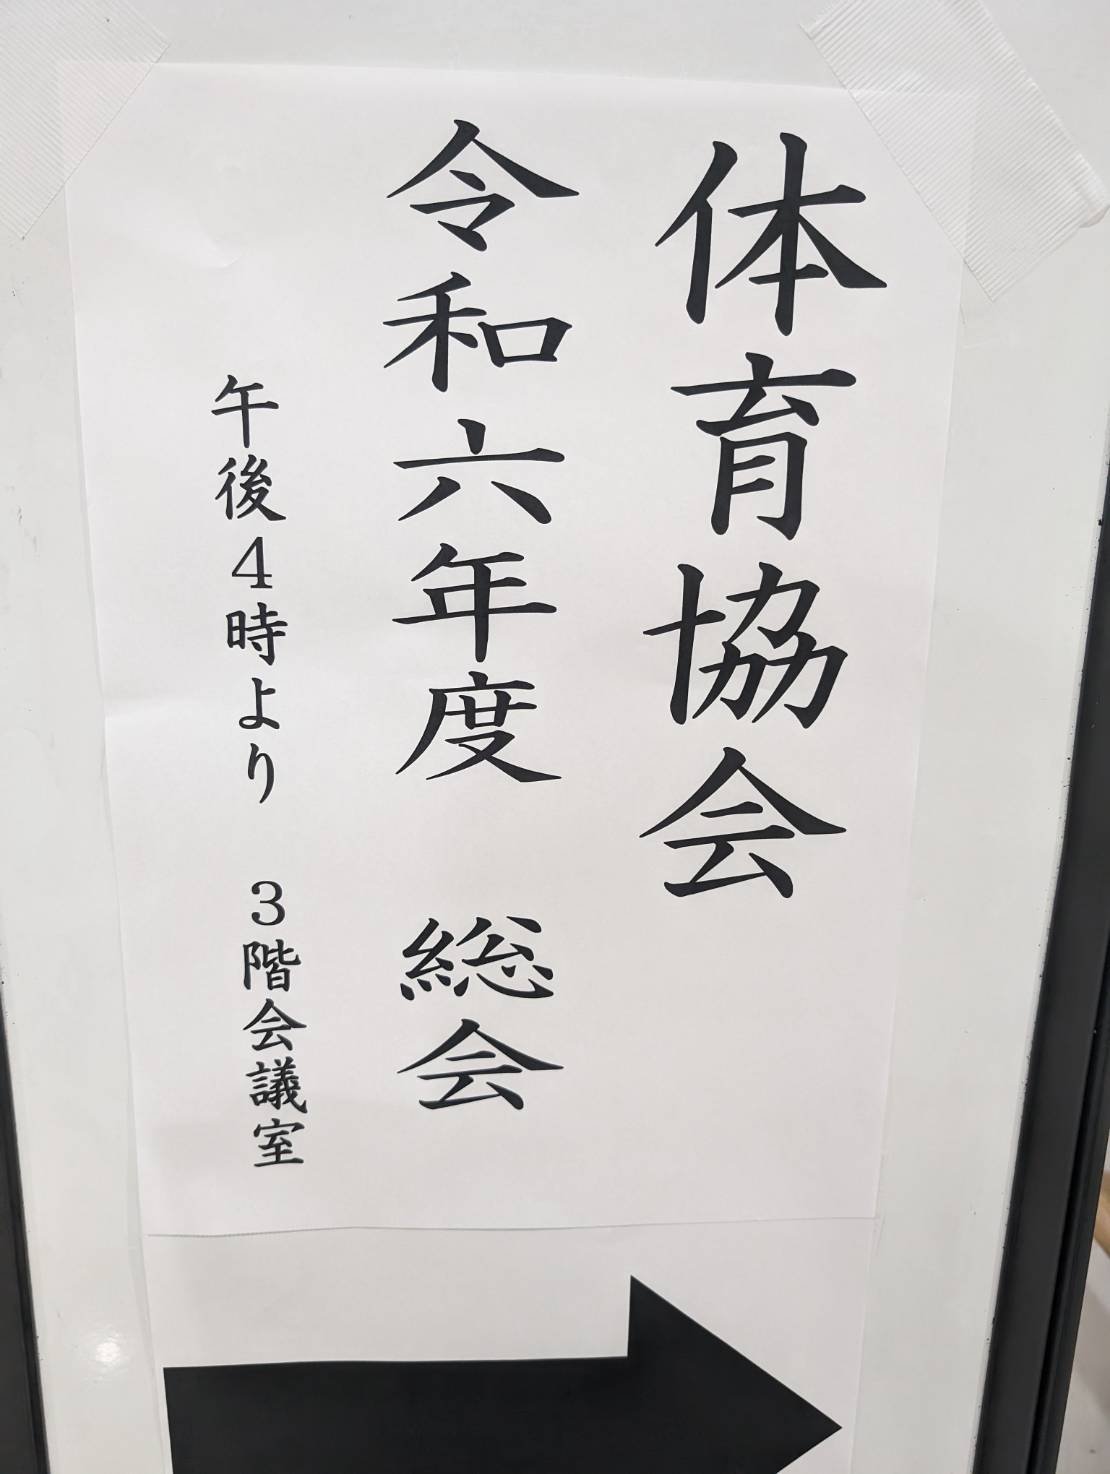 体育協会
令和六年度　総会
午後４時より　３階会議室